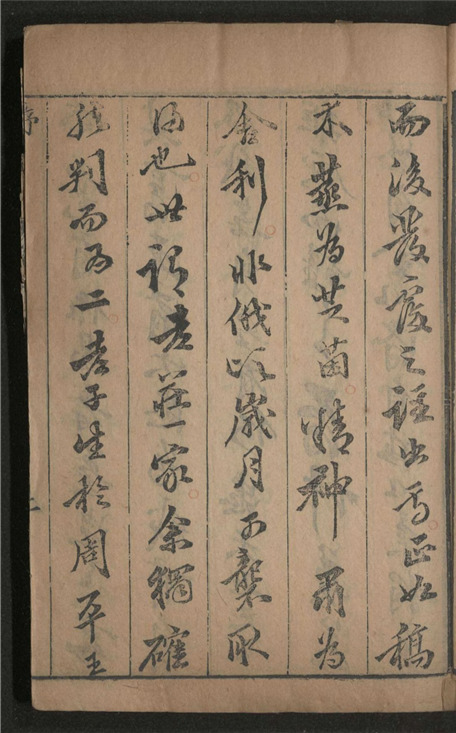 而後之語出焉正如稿
木蒸為芝菌精神為
舍利非俄歲月可襲取
得也世謂老莊一家余獨確
然判而為二老子生於周平王
序
二